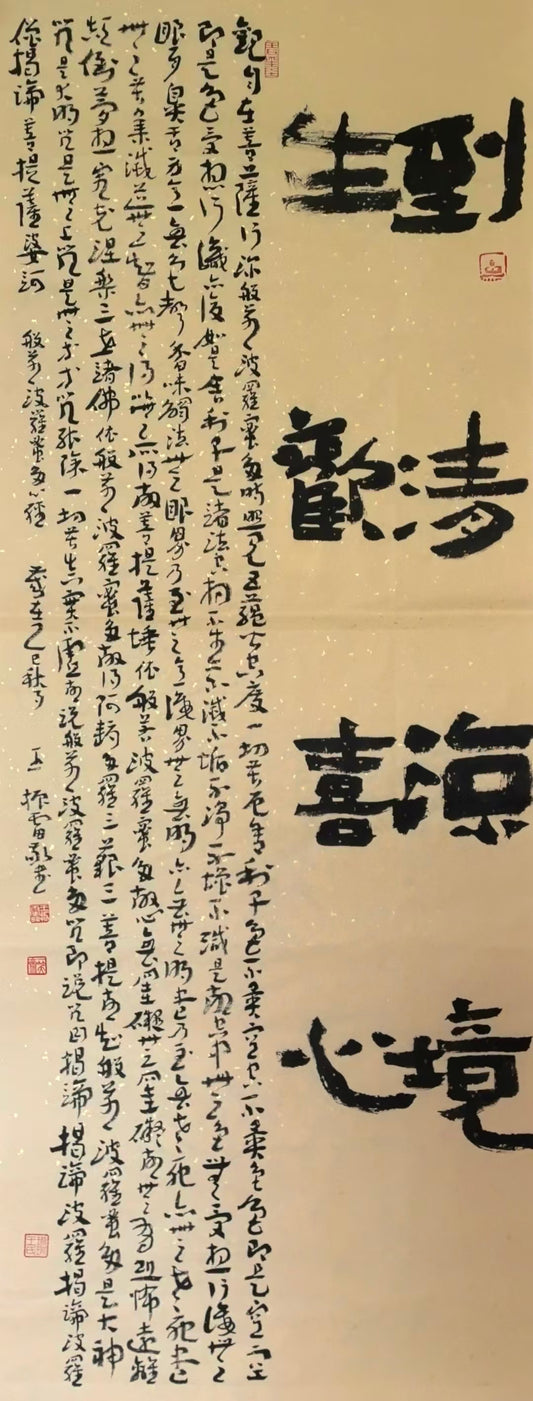 到清涼境
生歡喜心
觀自在菩薩行深般若波羅蜜多時照見五蘊皆空度一切苦厄舍利子色不異空空不異色色即是空空
即是色受想行識亦復如是舍利子是諸法空相不生不滅不垢不淨不增不減是故空中無色無受想行識無
眼耳鼻舌身意無色聲香味觸法無眼界乃至無意識界無無明亦無無明盡乃至無老死亦無老死盡
無苦集滅道無智亦無得以無所得故菩提薩埵依般若波羅蜜多故心無罣礙無罣礙故無有恐怖遠離
顛倒夢想究竟涅槃三世諸佛依般若波羅蜜多故得阿耨多羅三藐三菩提故知般若波羅蜜多是大神
咒是大明咒是無上咒是無等等咒能除一切苦真實不虛故說般若波羅蜜多咒即說咒曰揭諦揭諦波羅揭諦波羅
僧揭諦菩提薩婆訶 般若波羅蜜多心經 歲在乙巳秋月 王振雷敬書